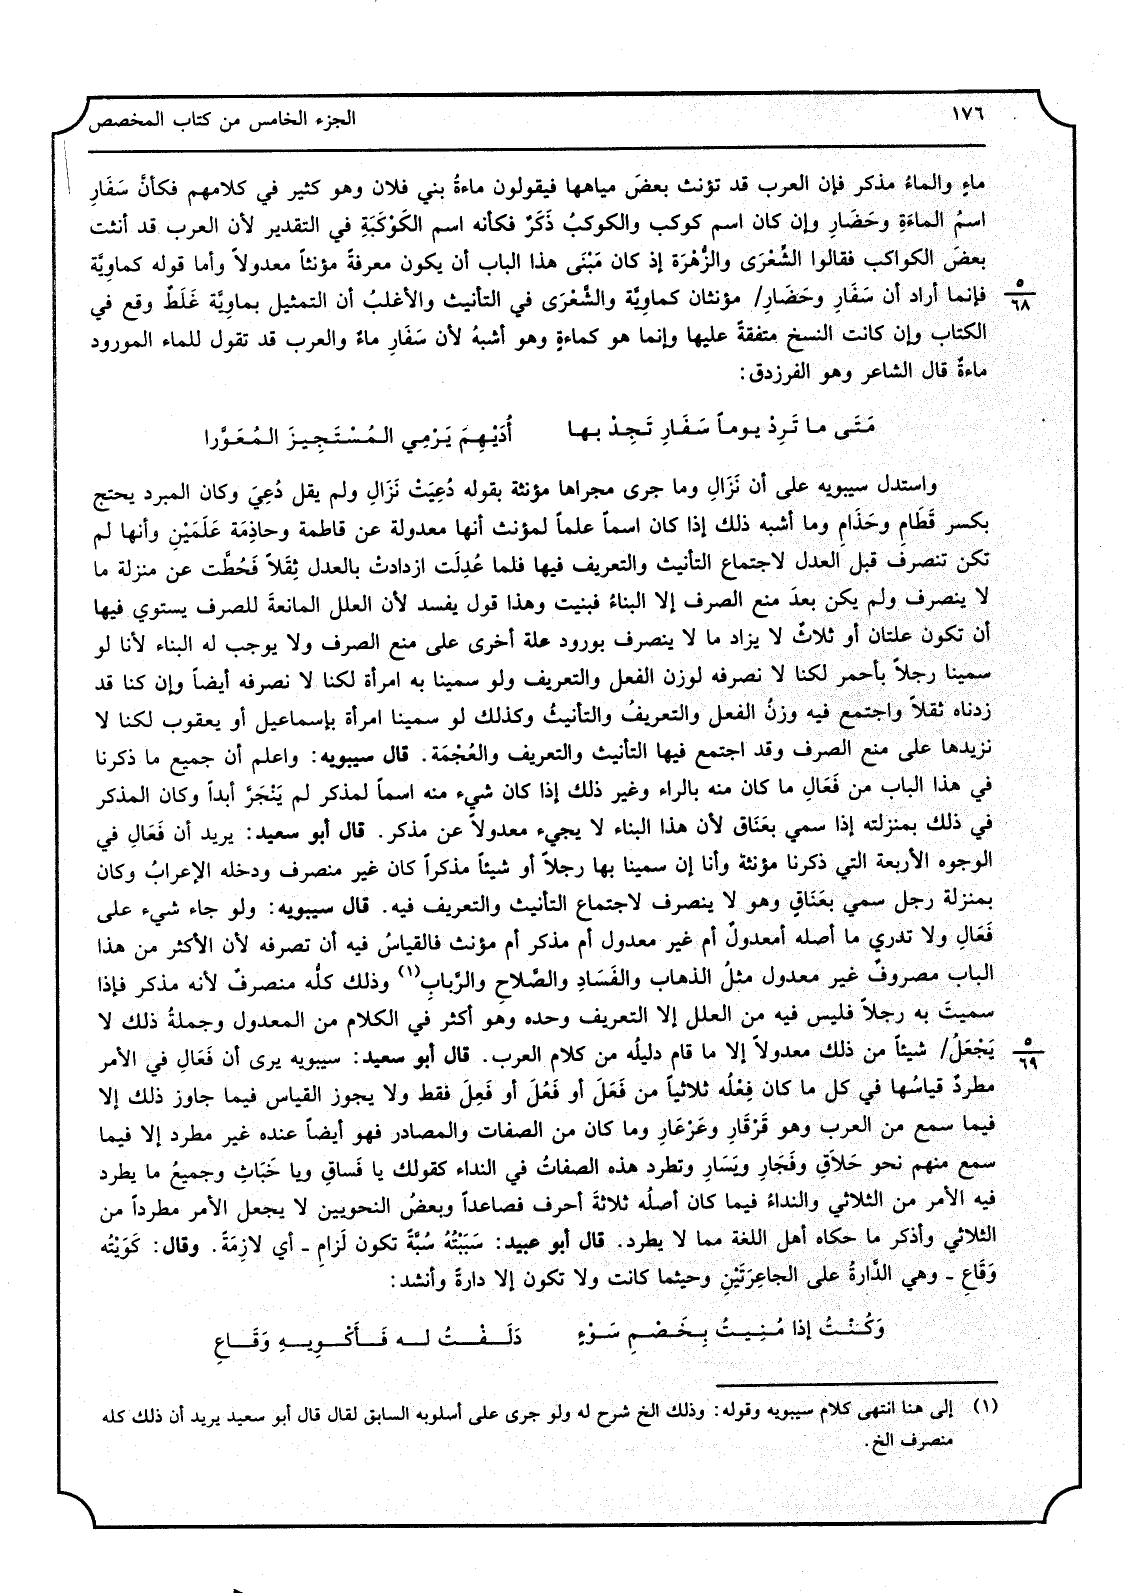 ١٧٦
الجزء الخامس من كتاب المخصص
ماءٍ والماءُ مذكر فإن العرب قد تؤنث بعضَ مياهها فيقولون ماءةُ بني فلان وهو كثير في كلامهم فكأنَّ سَفَارِ
اسمُ الماءَةِ وحَضَارِ وإن كان اسم كوكب والكوكبُ ذَكَرٌ فكأنه اسم الكَوْكَبَةِ في التقدير لأن العرب قد أنثت
بعضَ الكواكب فقالوا الشِّعْرَى والزُّهْرَة إذ كان مَبْنَى هذا الباب أن يكون معرفةً مؤنثاً معدولاً وأما قوله كماويَّة
فإنما أراد أن سَفَارِ وحَضَارِ/ مؤنثان كماويَّة والشِّعْرَى في التأنيث والأغلبُ أن التمثيل بماويَّة غَلَطٌ وقع في
٥
٦٨
الكتاب وإن كانت النسخ متفقةً عليها وإنما هو كماءةٍ وهو أشبهُ لأن سَفَارِ ماءٌ والعرب قد تقول للماء المورود
ماءةٌ قال الشاعر وهو الفرزدق:
مَتَى ما تَرِدْ يوماً سَفَارِ تَجِدْ بها أُدَيْهِمَ يَرْمِي المُسْتَجِيزَ المُعَوَّرا
واستدل سيبويه على أن نَزَالِ وما جرى مجراها مؤنثة بقوله دُعِيَتْ نَزَالِ ولم يقل دُعِيَ وكان المبرد يحتج
بكسر قَطَامِ وحَذَامِ وما أشبه ذلك إذا كان اسماً علماً لمؤنث أنها معدولة عن قاطمة وحاذِمَة عَلَمَيْنِ وأنها لم
تكن تنصرف قبل العدل لاجتماع التأنيث والتعريف فيها فلما عُدِلَت ازدادتْ بالعدل ثِقَلاً فَحُطَّت عن منزلة ما
لا ينصرف ولم يكن بعدَ منع الصرف إلا البناءُ فبنيت وهذا قول يفسد لأن العلل المانعةَ للصرف يستوي فيها
أن تكون علتان أو ثلاثٌ لا يزاد ما لا ينصرف بورود علة أخرى على منع الصرف ولا يوجب له البناء لأنا لو
سمينا رجلاً بأحمر لكنا لا نصرفه لوزن الفعل والتعريف ولو سمينا به امرأة لكنا لا نصرفه أيضاً وإن كنا قد
زدناه ثقلاً واجتمع فيه وزنُ الفعل والتعريفُ والتأنيثُ وكذلك لو سمينا امرأة بإسماعيل أو يعقوب لكنا لا
نزيدها على منع الصرف وقد اجتمع فيها التأنيث والتعريف والعُجْمَة. قال سيبويه: واعلم أن جميع ما ذكرنا
في هذا الباب من فَعَالِ ما كان منه بالراء وغير ذلك إذا كان شيء منه اسماً لمذكر لم يَنْجَرَّ أبداً وكان المذكر
في ذلك بمنزلته إذا سمي بعَنَاق لأن هذا البناء لا يجيء معدولاً عن مذكر. قال أبو سعيد: يريد أن فَعَالِ في
الوجوه الأربعة التي ذكرنا مؤنثة وأنا إن سمينا بها رجلاً أو شيئاً مذكراً كان غير منصرف ودخله الإعرابُ وكان
بمنزلة رجل سمي بعَنَاقٍ وهو لا ينصرف لاجتماع التأنيث والتعريف فيه. قال سيبويه: ولو جاء شيء على
فَعَالِ ولا تدري ما أصله أمعدولٌ أم غير معدول أم مذكر أم مؤنث فالقياسُ فيه أن تصرفه لأن الأكثر من هذا
الباب مصروفٌ غير معدول مثلُ الذهاب والفَسَادِ والصَّلاحِ والرَّبابِ(١) وذلك كلُّه منصرفٌ لأنه مذكر فإذا
سميتَ به رجلاً فليس فيه من العلل إلا التعريف وحده وهو أكثر في الكلام من المعدول وجملةُ ذلك لا
يَجْعَلُ/ شيئاً من ذلك معدولاً إلا ما قام دليلُه من كلام العرب. قال أبو سعيد: سيبويه يرى أن فَعَالِ في الأمر
٥
٦٩
مطردٌ قياسُها في كل ما كان فِعْلُه ثلاثياً من فَعَلَ أو فَعُلَ أو فَعِلَ فقط ولا يجوز القياس فيما جاوز ذلك إلا
فيما سمع من العرب وهو قَرْقَارِ وعَرْعَارِ وما كان من الصفات والمصادر فهو أيضاً عنده غير مطرد إلا فيما
سمع منهم نحو حَلاَقِ وفَجَارِ ويَسَارِ وتطرد هذه الصفاتُ في النداء كقولك يا فَساقِ ويا خَبَاثِ وجميعُ ما يطرد
فيه الأمر من الثلاثي والنداءُ فيما كان أصلُه ثلاثةَ أحرف فصاعداً وبعضُ النحويين لا يجعل الأمر مطرداً من
الثلاثي وأذكر ما حكاه أهل اللغة مما لا يطرد. قال أبو عبيد: سَبَبْتُهُ سُبَّةً تكون لَزامِ ـ أي لازِمَةً. وقال: كَوَيْتُه
وَقَاعِ ـ وهي الدَّارةُ على الجاعِرَتَيْنِ وحيثما كانت ولا تكون إلا دارةً وأنشد:
وَكُنْتُ إذا مُنِيتُ بِخَصْمِ سَوْءٍ دَلَفْتُ له فَأَكْوِيهِ وَقَاعِ
(١) إلى هنا انتهى كلام سيبويه وقوله: وذلك الخ شرح له ولو جرى على أسلوبه السابق لقال قال أبو سعيد يريد أن ذلك كله
منصرف الخ.